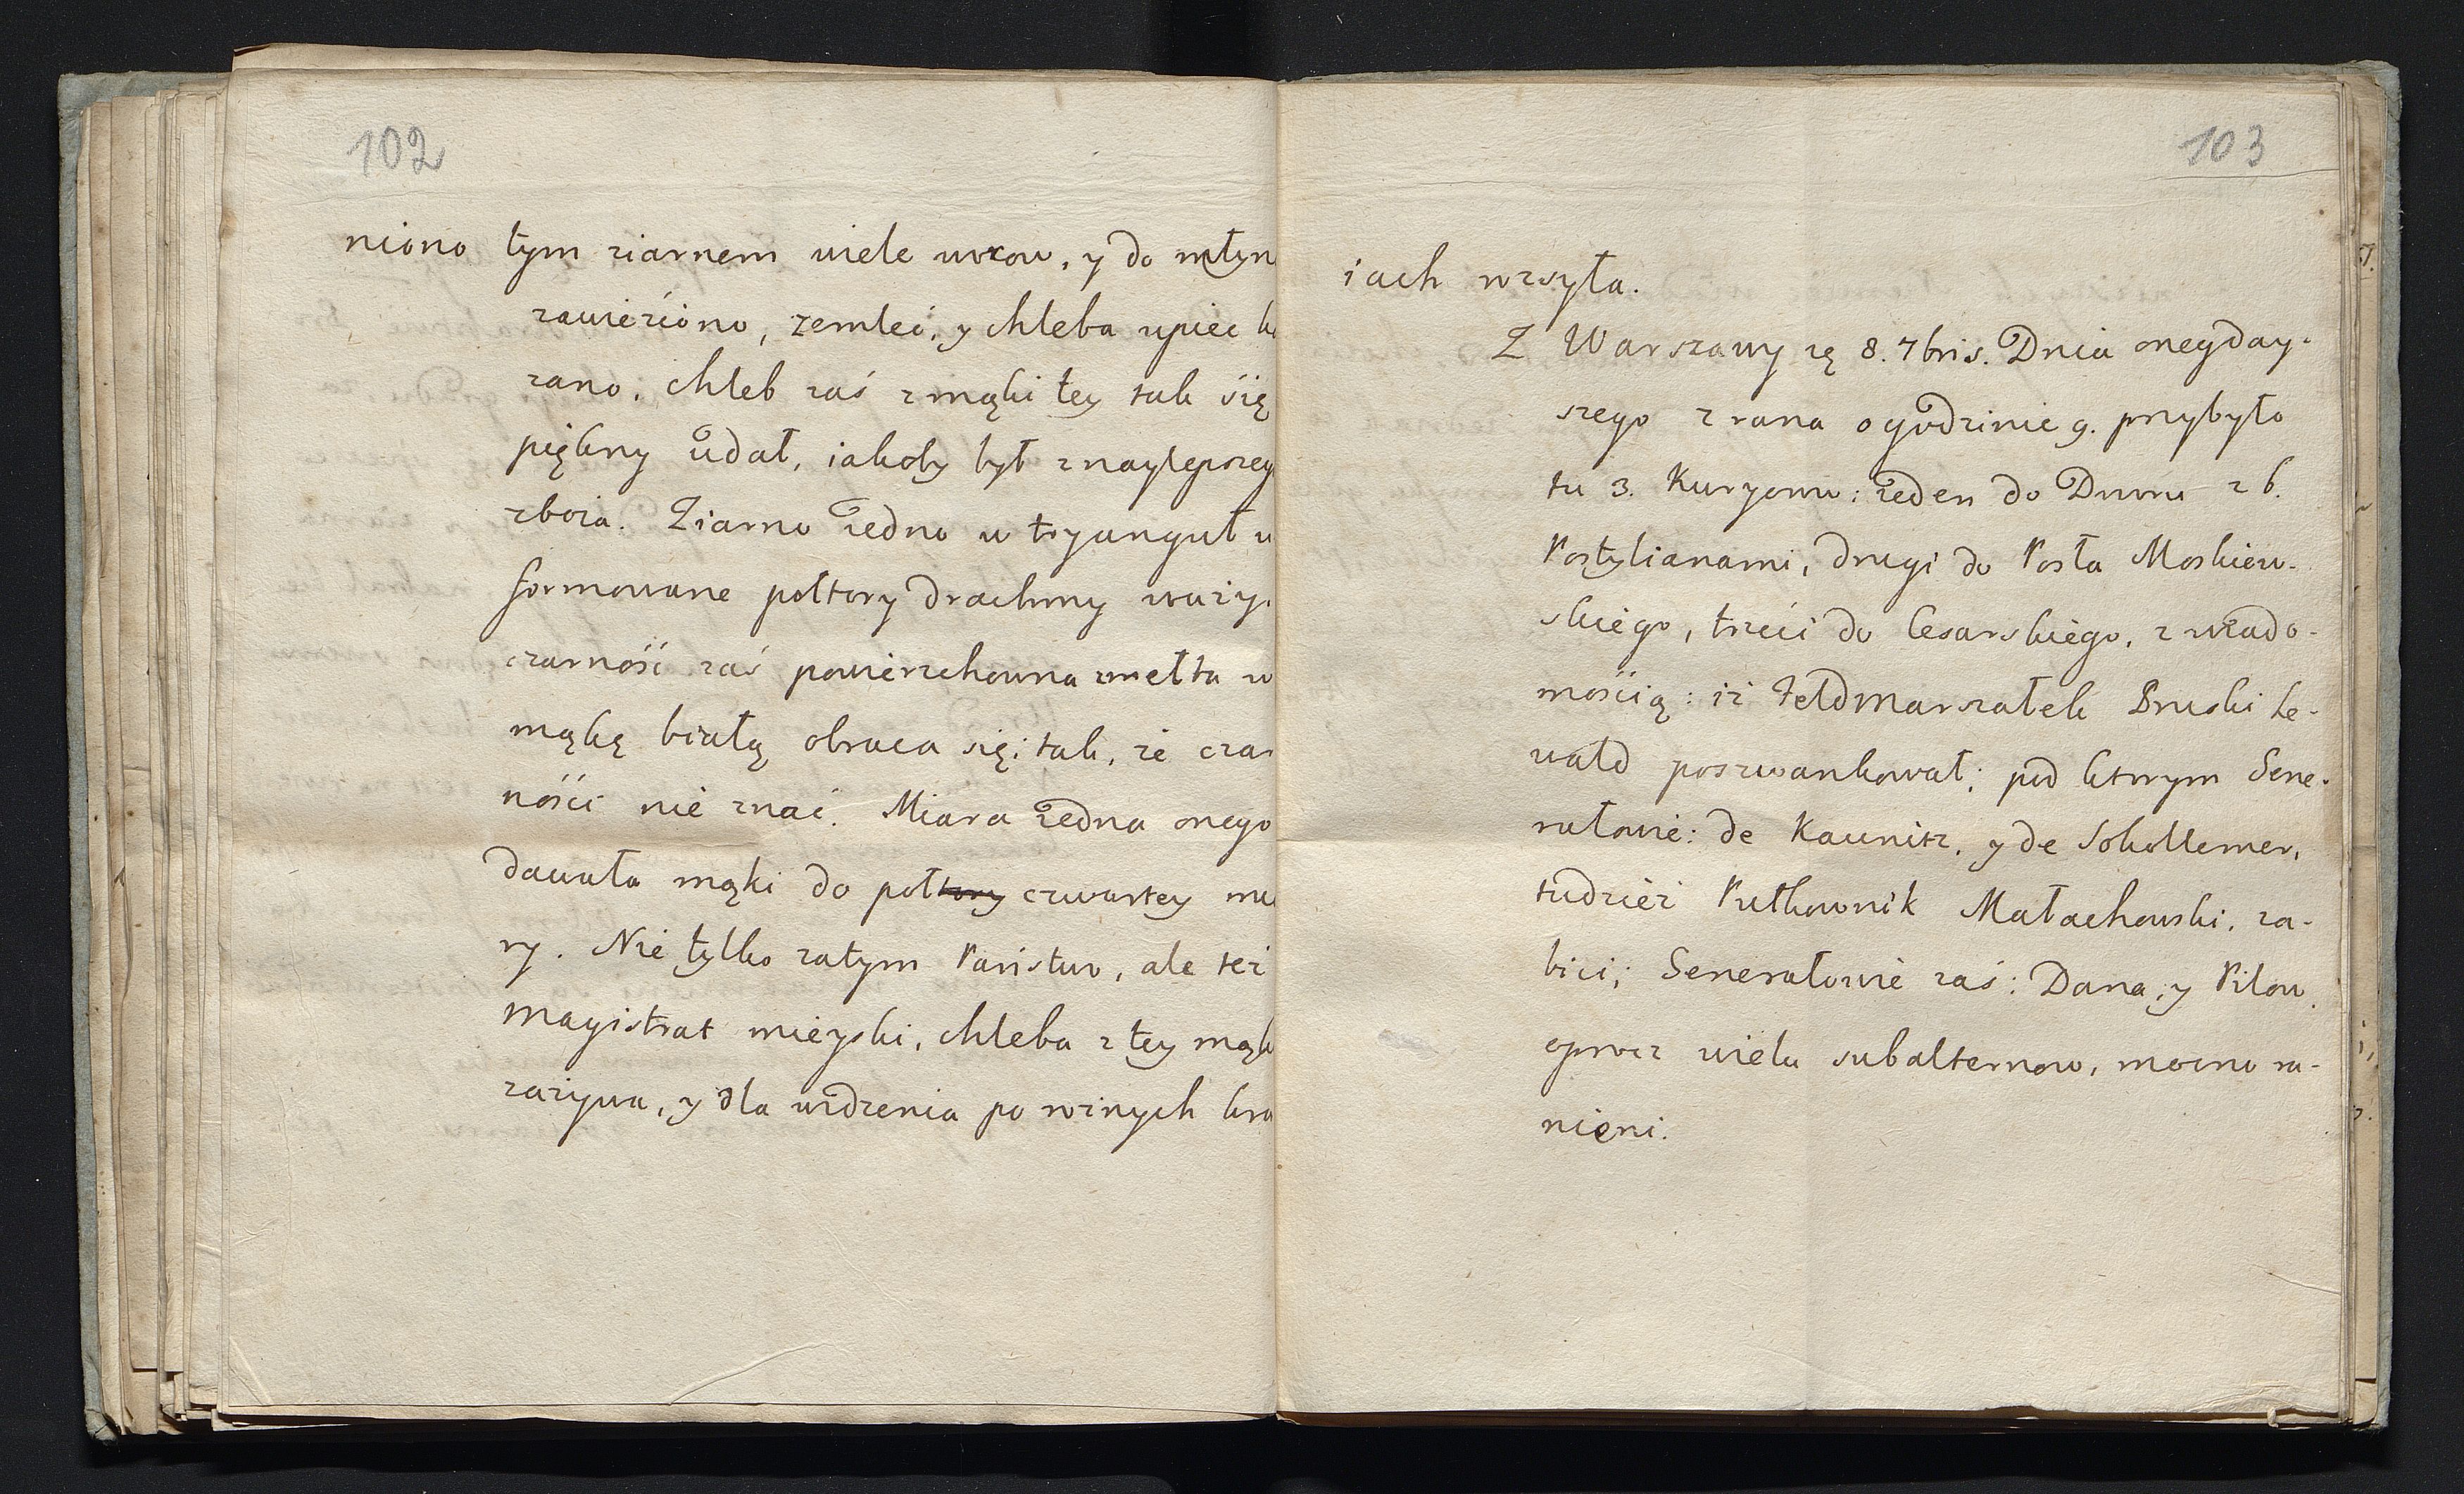 102
niono tym ziarnem wiele worow, y do młyn
zawieziono, zemleć, y chleba upiec k
zano. Chleb zaś z mąki tey tak się
piękny udał, iakoby był z naylepszeg
zboża. Ziarno iedno w tryanguł u
formowane połtory drachmy waży.
czarność zaś powierzchowna zmełta w
mąkę białą obraca się; tak, że czar
ności nie znać. Miara iedna onego
dawała mąki do połtory czwartey mia
ry. Nie tylko zatym Państwo, ale też
magistrat mieyski, chleba z tey mąk
zażywa, y dla widzenia po roznych kra
103
iach rozsyła.
Z Warszawy 8. 7bris. Dnia onegday-
szego z rana o godzinie 9. przybyło
tu 3. Kuryerow: ieden do Dworu z 6.
Postylianami, drugi do Posła Moskiew-
skiego, trzeci do Cesarskiego, z wiado-
mością: iż Feldmarszałek Pruski Le-
wald poszwankował; pod ktorym Gene-
rałowie: de Kaunitz, y de
tudzież Pułkownik Małachowski, za-
bici; Generałowie zaś: Dona, y Pilow
oprocz wielu subalternow, mocno ra-
nieni.